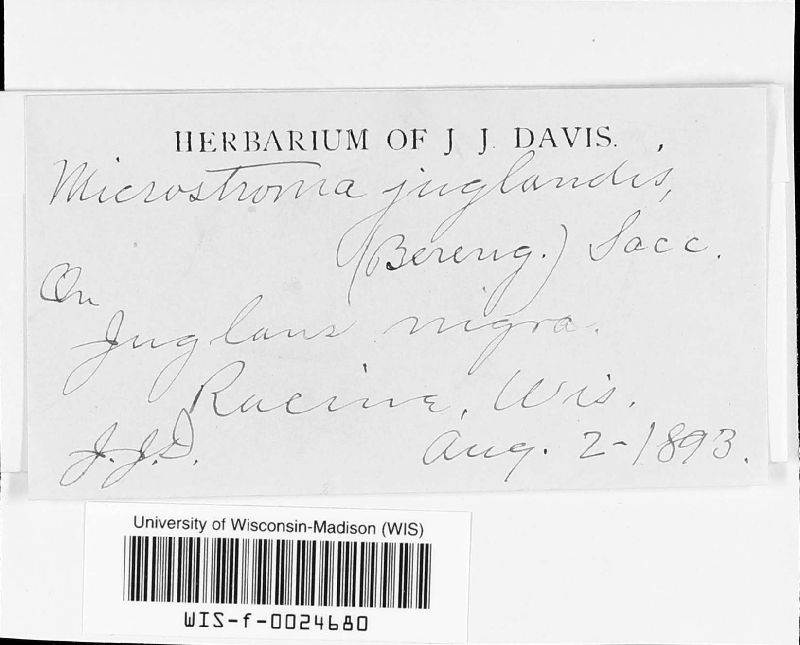 HERBARIUM OF J J. DAVIS.
Microstroma juglandis,
(Bereng.) Sacc.
On
Juglans nigra.
Racine, Wis.
J.J.D. Aug. 2-1893.
University of Wisconsin-Madison (WIS)
WIS-f-0024680